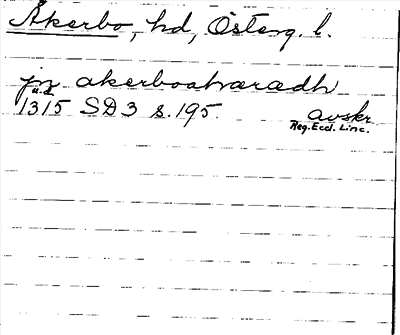 Åkerbo, hd, Österg. l.
jn akerboahæradh
u.d.
1315 SD 3 s. 195. avskr.
Reg. Eccl. Linc.